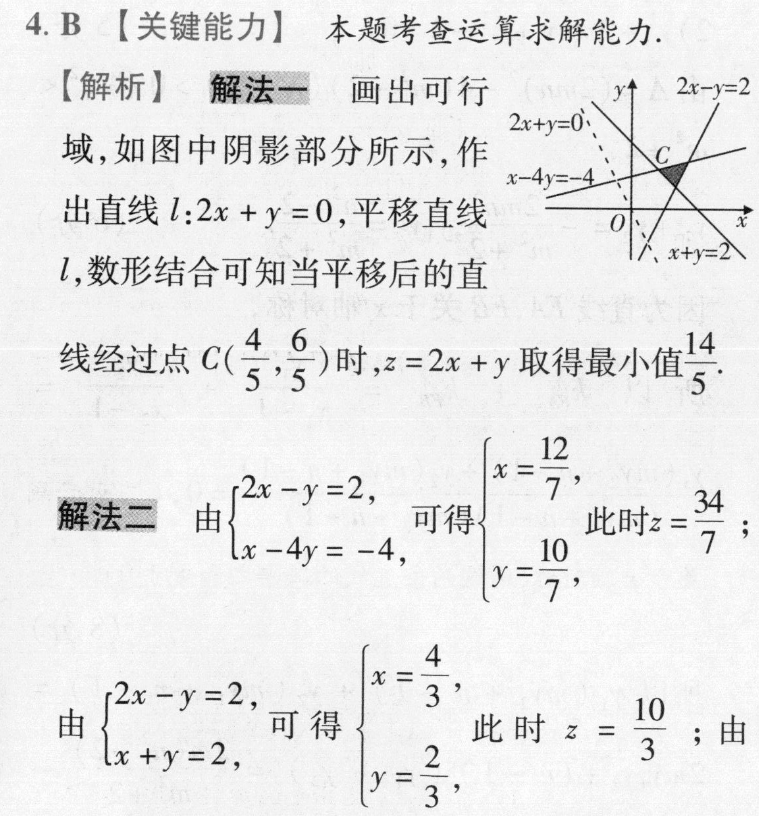 4. B 【关键能力】 本题考查运算求解能力.
【解析】 解法一 画出可行
域,如图中阴影部分所示,作
出直线 l:2x + y = 0,平移直线
l,数形结合可知当平移后的直
y
2x-y=2
2x+y=0
C
x-4y=-4
O
x
x+y=2
线经过点 C(4/5,6/5)时,z = 2x + y 取得最小值14/5.
解法二 由{2x - y = 2, x - 4y = -4, 可得{x = 12/7, y = 10/7, 此时z = 34/7 ;
由{2x - y = 2, x + y = 2, 可得{x = 4/3, y = 2/3, 此时 z = 10/3 ;由